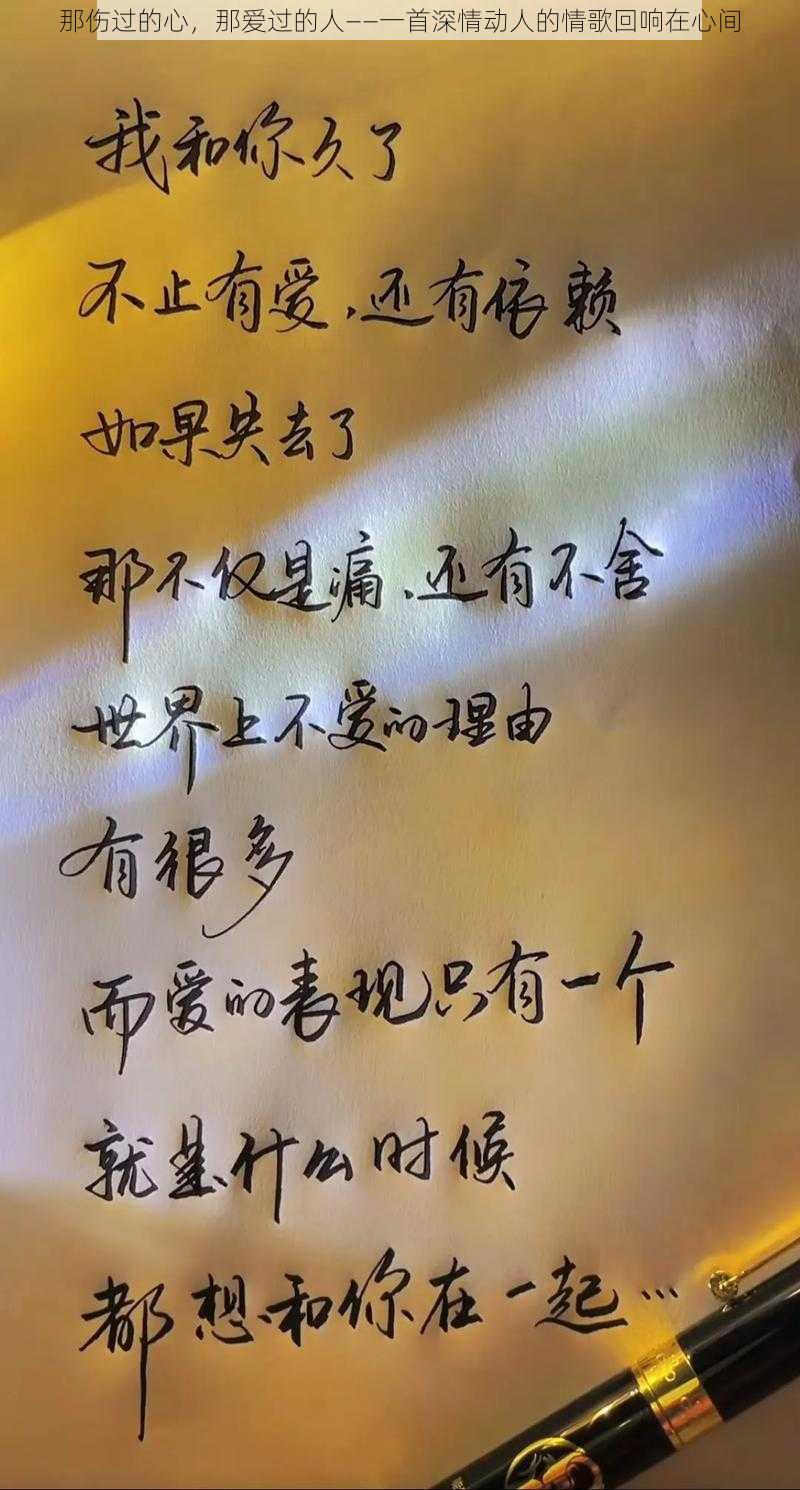 那伤过的心，那爱过的人——一首深情动人的情歌回响在心间
我和你久了
不止有爱，还有依赖
如果失去了
那不仅是痛，还有不舍
世界上不爱的理由
有很多
而爱的表现只有一个
就是什么时候
都想和你在一起…